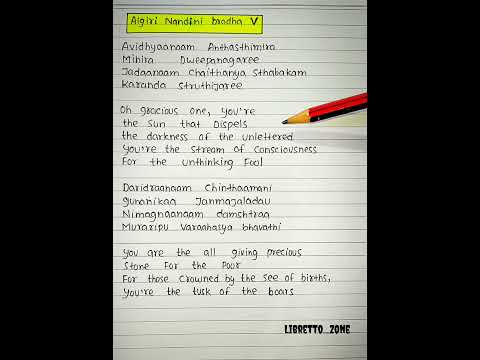 Aigiri Nandini bradha V
Avidhyaanaam Anthasthimira
Mihira Dweepanagaree
Jadaanaam Chaithanya Sthabakam
Karanda Struthijaree
Oh gracious one, You're
the Sun that Dispels
the darkness of the unlettered
You're the Stream of Consciousness
For the unthinking Fool
Daridraanaam Chinthaamani
gunanikaa Janmajaladau
Nimagnaanaam damshtraa
Muraripu Varaahasya bhavathi
You are the all giving precious
Stone For the Pour
For those Crowned by the See of births,
You're the tusk of the boars
LIBRETTO_ZONE